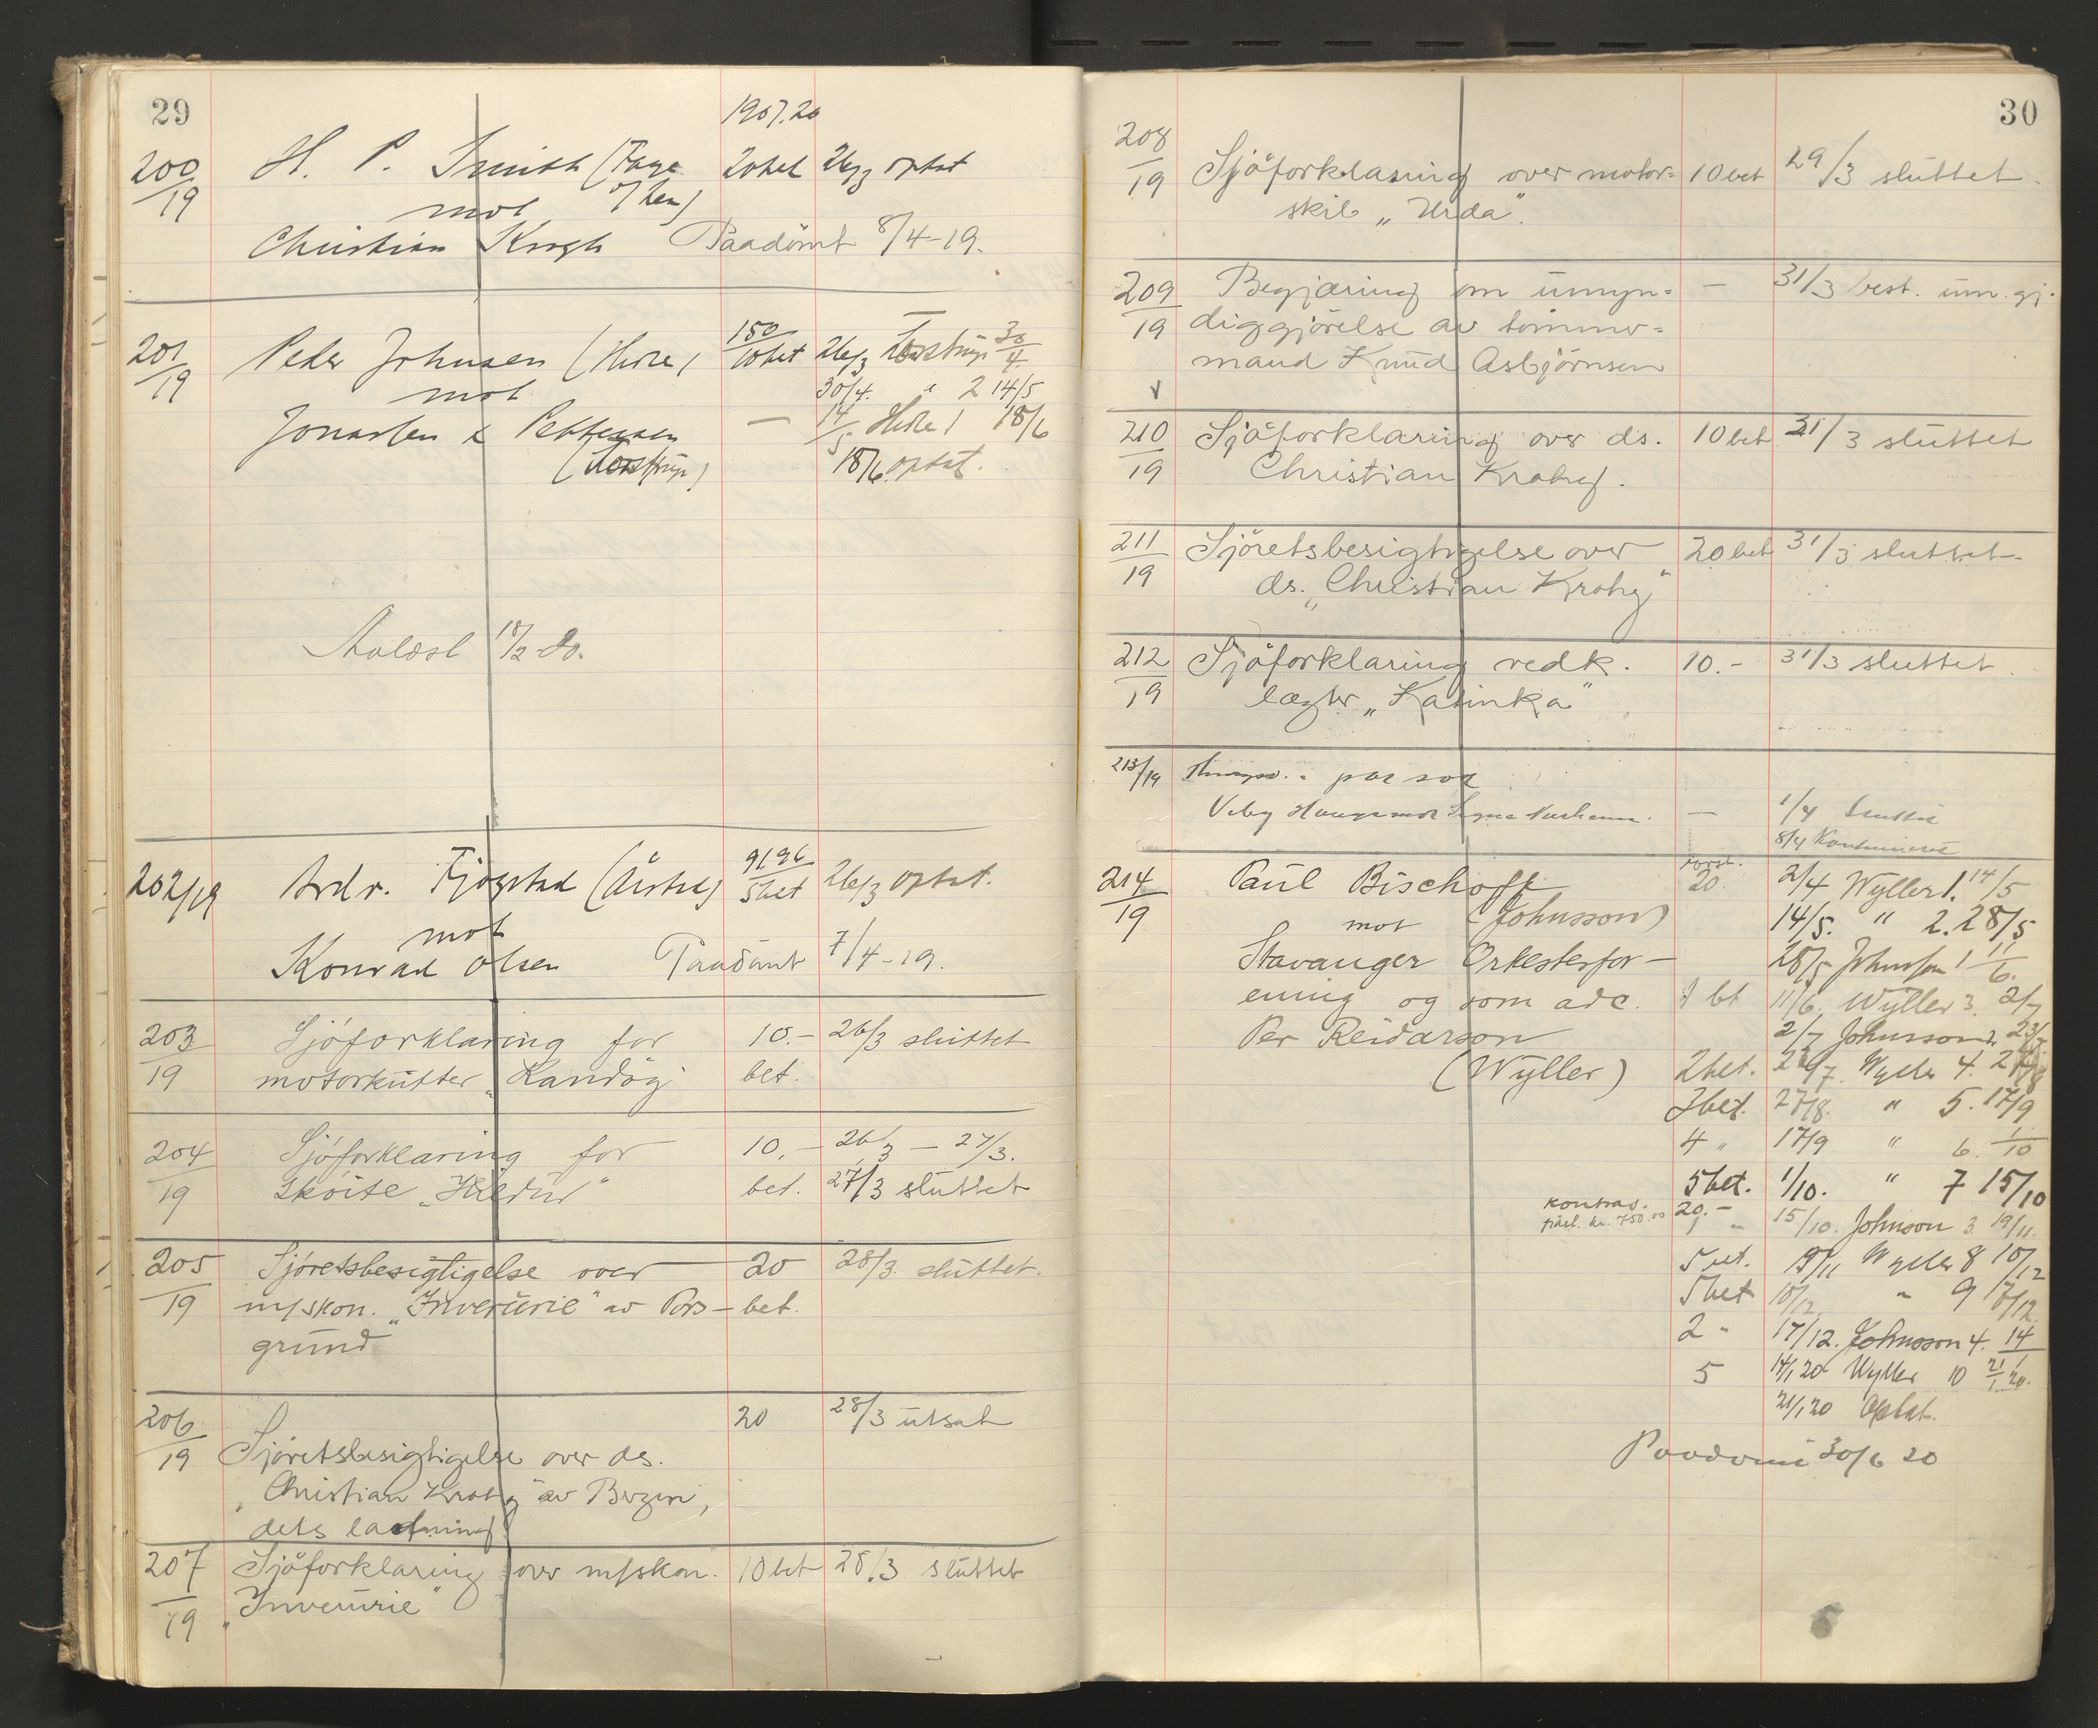 29
1907.20
200/19 H. P. Smith 20 bet 26/3 optat
mot
Christian Krogh Paadömt 8/4-19.
201/19 Peder Johnsen (Hidle) 150 10 bet 26/3 30/4
mot 30/4. " 2 14/5
Jonassen & Pettersen — 14/5 Hidle 1 18/6
18/6 optat.
18/2 20.
202/19 Ardr. Fjogstad 9196 5 bet 26/3 optat.
mot
Konrad Olsen Paadömt 7/4-19.
203/19 Sjöforklaring for 10.- 26/3 sluttet
motorkutter „Kandöy" bet.
204/19 Sjöforklaring for 10.- 26/3 — 27/3.
Sköite „Hildur" bet. 27/3 sluttet
205/19 Sjöretsbesigtigelse over 20 28/3 sluttet.
m/skon. „Inverurie" av Pors- bet.
grund
206/19 20 28/3 utsat
Sjöretsbesigtigelse over ds.
„Christian Krohg" av Bergen,
dets ladning
207/19 Sjöforklaring over m/skon. 10 bet 28/3 sluttet
„Inverurie"
30
208/19 Sjöforklaring over motor- 10 bet 29/3 sluttet.
skib „Urda".
209/19 Begjæring om umyn- — 31/3 best. um. gj.
diggjörelse av tömmer-
mand Knud Asbjörnsen
210/19 Sjöforklaring over ds. 10 bet 31/3 sluttet
Christian Krohg.
211/19 Sjöretsbesigtigelse over 20 bet 31/3 sluttet
ds. „Christian Krohg"
212/19 Sjöforklaring vedk. 10.- 31/3 sluttet
lægter „Katinka"
213/19
mot Signe — 1/4 Sluttet
8/4
214/19 Paul Bischoff 20. 2/4 Wyller 1. 14/5
mot (Johnsson) 14/5. " 2. 28/5
Stavanger Orkesterfor- 28/5 Johnsson 1 11/6.
ening og som adc. 1 bt 11/6. Wyller 3. 2/7
Per Reidarson 2/7 Johnsson 2. 23/7
(Wyller) 2 bet. Wyller 4. 27/8
3 bet. 27/8. " 5. 17/9
4 " 17/9 " 6. 1/10
5 bet. 1/10. " 7 15/10
kontras. 20.-
kr. 750.00 1 " 15/10. Johnson 3. 19/11.
5 bet. 19/11 Wyller 8 10/12
5 bet 10/12. " 9 17/12
2 " 17/12. Johnsson 4. 14/1
5 14/1 20 Wyller 10 21/1 20.
21/1 20 Optat.
Paadömt 30/6 20